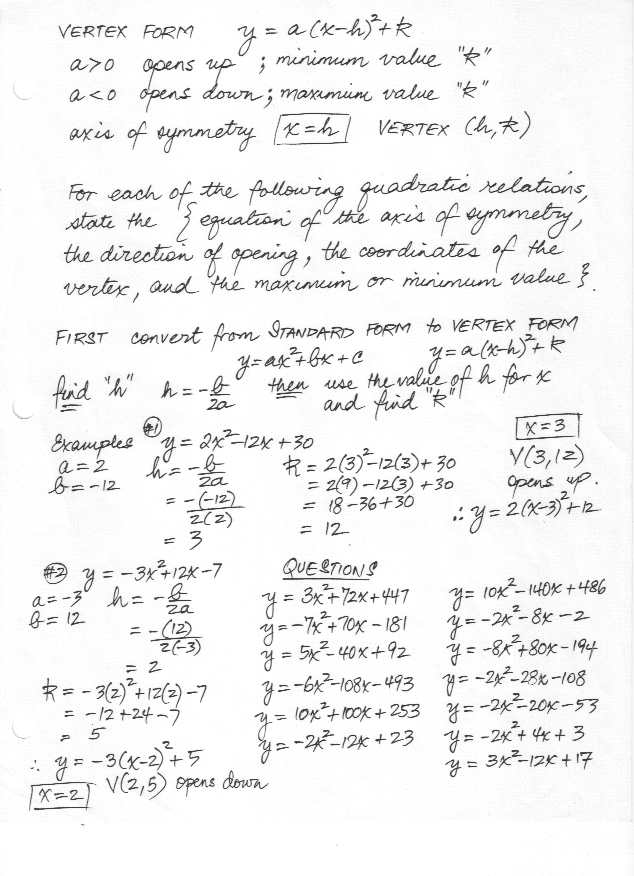 VERTEX FORM y = a(x-h)²+k
a>0 opens up ; minimum value "k"
a<0 opens down ; maximum value "k"
axis of symmetry x=h VERTEX (h,k)
For each of the following quadratic relations,
state the { equation of the axis of symmetry,
the direction of opening, the coordinates of the
vertex, and the maximum or minimum value }.
FIRST convert from STANDARD FORM to VERTEX FORM
y=ax²+bx+c y=a(x-h)²+k
find "h" h = -b/2a then use the value of h for x
and find "k"
Examples #1 y = 2x²-12x+30
a=2
b=-12
h = -b/2a
= -(-12)/2(2)
= 3
k = 2(3)²-12(3)+30
= 2(9)-12(3)+30
= 18-36+30
= 12
x=3
V(3,12)
opens up.
∴ y=2(x-3)²+12
#2 y = -3x²+12x-7
a=-3
b=12
h = -b/2a
= -(12)/2(-3)
= 2
k = -3(2)²+12(2)-7
= -12+24-7
= 5
∴ y=-3(x-2)²+5
x=2 V(2,5) opens down
QUESTIONS
y = 3x²+72x+447
y=-7x²+70x-181
y = 5x²-40x+92
y=-6x²-108x-493
y= 10x²+100x+253
y=-2x²-12x+23
y= 10x²-140x+486
y=-2x²-8x-2
y = -8x²+80x-194
y= -2x²-28x-108
y=-2x²-20x-53
y=-2x²+4x+3
y = 3x²-12x+17